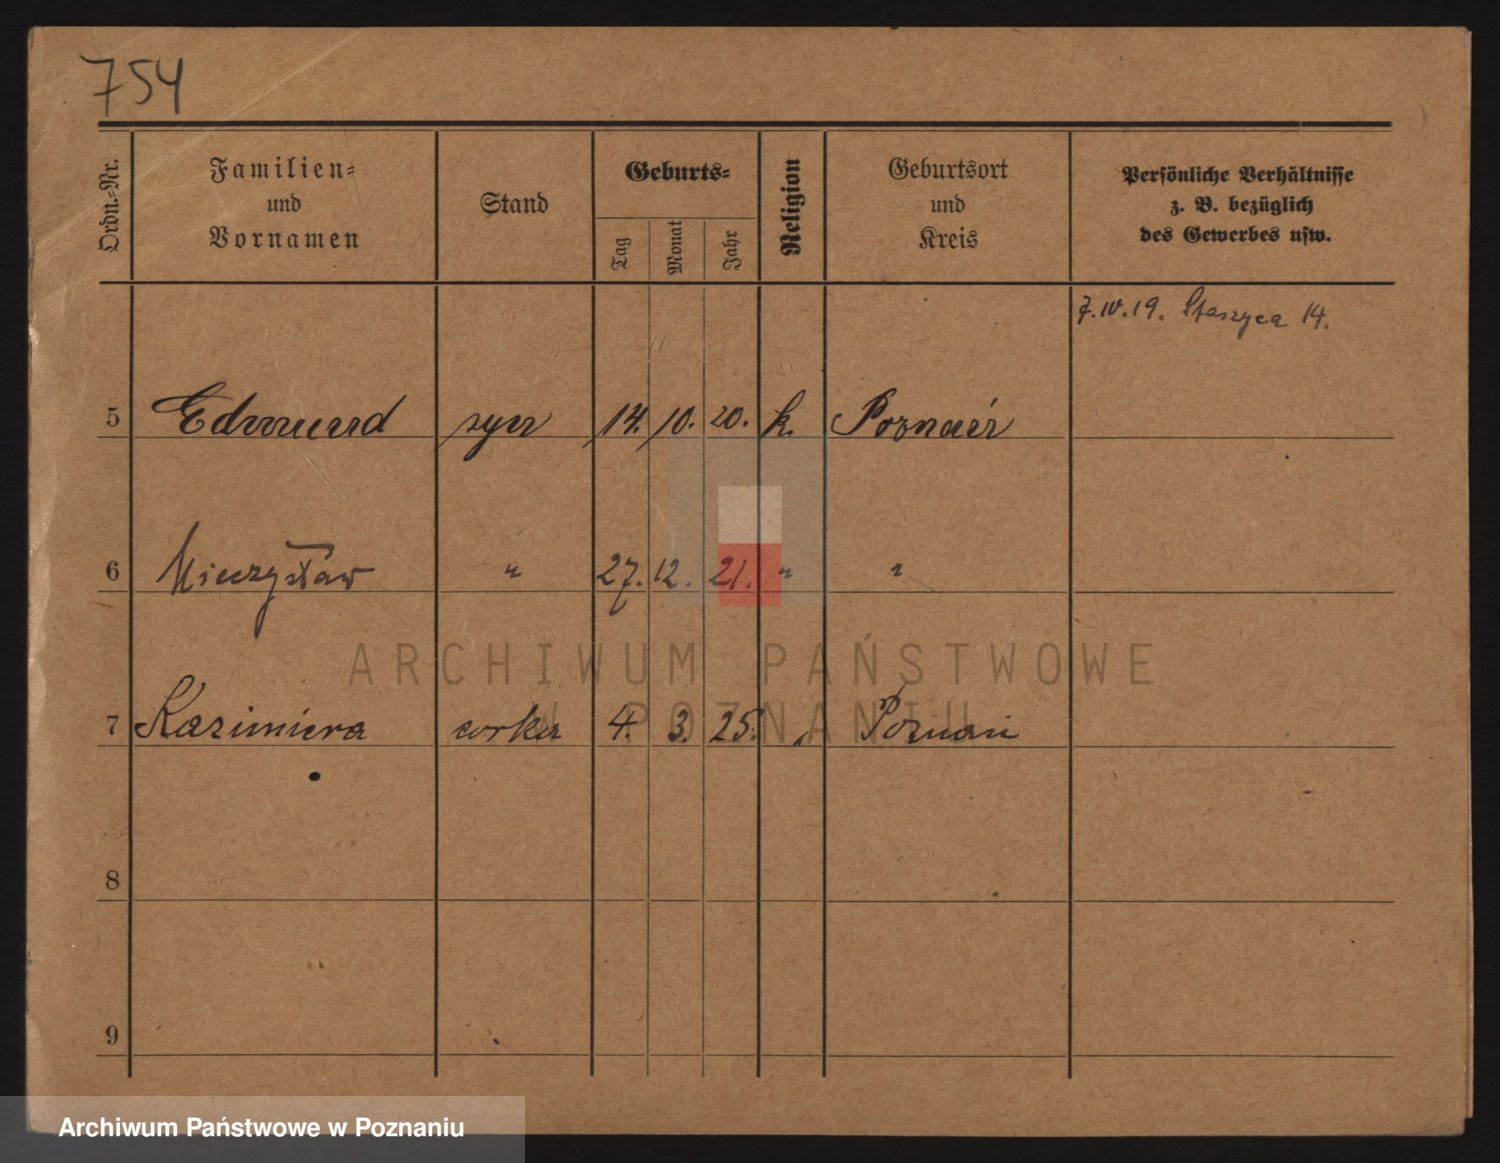 754
Ordn.-Nr.
Familien-
und
Vornamen
Stand
Geburts-
Tag
Monat
Jahr
Religion
Geburtsort
und
Kreis
Persönliche Verhältnisse
z. B. bezüglich
des Gewerbes usw.
7.IV.19. Staszyca 14.
5 Edmund syn 14. 10. 20. k. Poznań
6 Mieczysław " 27. 12. 21. " "
7 Kazimiera corka 4. 3. 25. " Poznań
8
9
ARCHIWUM PAŃSTWOWE
W POZNANIU
Archiwum Państwowe w Poznaniu